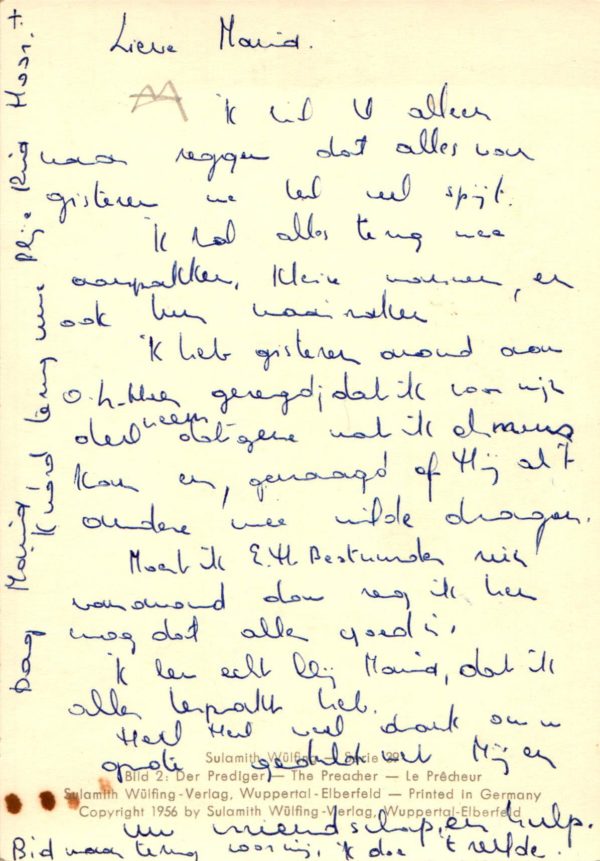 Lieve Maria.
ik wil U alleen
maar zeggen dat alles van
gisteren me heel veel spijt.
ik zal alles terug mee
aanpakken. Kleine mannen, en
ook hun
ik heb gisteren avond aan
O.L.Heer gezegd, dat ik voor mijn
deel neem datgene wat ik als mens
kan en, gevraagd of Hij al 't
andere mee wilde dragen.
Moest ik E.H. Bestuurder zien
vanavond dan zeg ik hem
nog dat alles goed is.
ik ben echt blij Maria, dat ik
alles bepraat heb.
Heel Heel veel dank om uw
grote geduld met Mij en
uw vriendschap, en hulp.
Bid maar terug voor mij, ik doe 't zelfde.
Dag Maria
ik word terug uwe blije
Sulamith Wülfing — Serie 39
Bild 2: Der Prediger — The Preacher — Le Prêcheur
Sulamith Wülfing-Verlag, Wuppertal-Elberfeld — Printed in Germany
Copyright 1956 by Sulamith Wülfing-Verlag, Wuppertal-Elberfeld